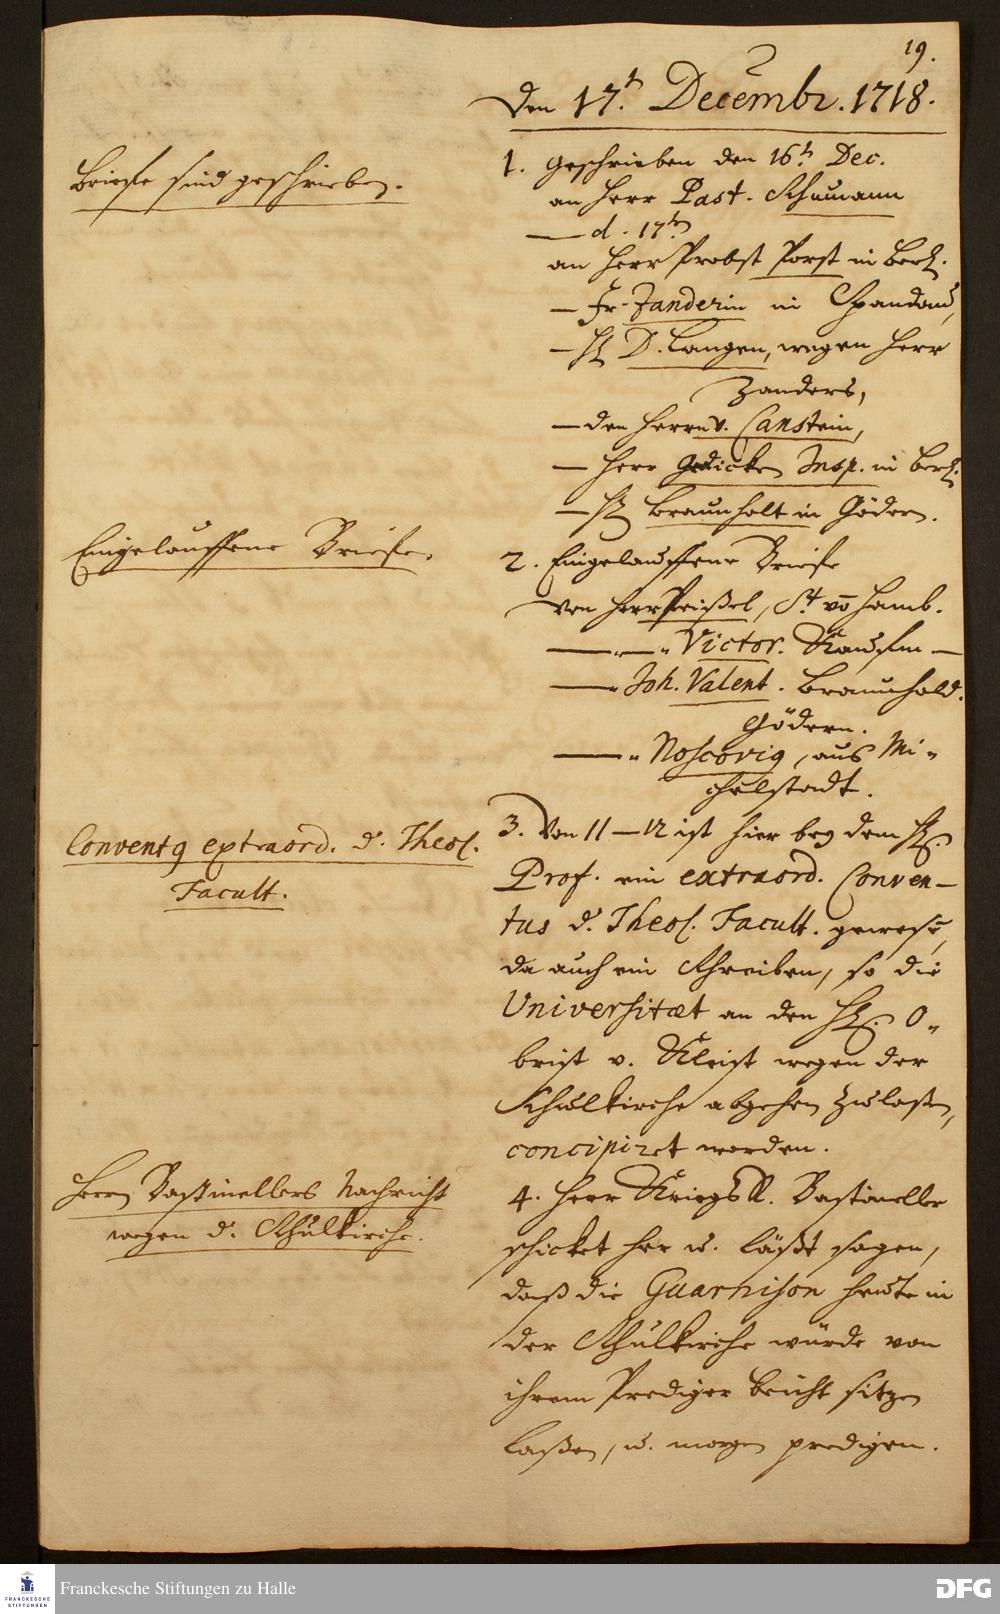 19.
Den 17.t Decembr. 1718.
Briefe sind geschrieben.
1. Geschrieben den 16t Dec.
an Herr Past. Schumann
— d. 17t
an Herr Probst Porst in Berl.
— Fr. Zanderin in Spandau,
— H D. Langen, wegen Herr
Zanders,
— den Herrn v. Canstein,
— Herr Gedicken Insp. in Berl.
— H Braunholt in Gödern.
Eingelauffene Briefe.
2. Eingelauffene Briefe
von Herr Preißel, St. vō Hamb.
— " — " Victor. Kauffm —
— " Joh. Valent. Braunhold.
Gödern.
— " Noscovig, aus Mi-
chelstadt.
Convent9 extraord. d. Theol.
Facult.
3. Von 11 — 12 ist hier bey dem H.
Prof. ein extraord. Conven-
tus d. Theol. Facult. gewesē,
da auch ein Schreiben, so die
Universitæt an den H. O-
brist v. Kleist wegen der
Schulkirche abgehen zulaßen,
concipiret worden.
Herrn Bastinellers Nachricht
wegen d. Schulkirche.
4. Herr KriegsR. Bastineller
schicket her u. läßt sagen,
daß die Guarnison heute in
der Schulkirche würde von
ihrem Prediger beicht sitzen
laßen, u. morgen predigen.
FRANCKESCHE
STIFTUNGEN
Franckesche Stiftungen zu Halle
DFG